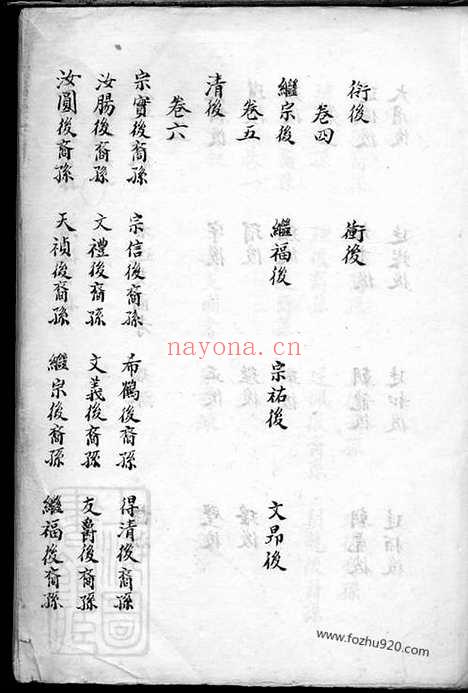 衍後 衝後
卷四
繼宗後 繼福後 宗祐後 文昂後
卷五
清後
卷六
宗實後裔孫 宗信後裔孫 希鶴後裔孫 得清後裔孫
汝腸後裔孫 文禮後裔孫 文義後裔孫 友爵後裔孫
汝圓後裔孫 天禎後裔孫 繼宗後裔孫 繼福後裔孫
nayona.cn
www.fozhu920.com